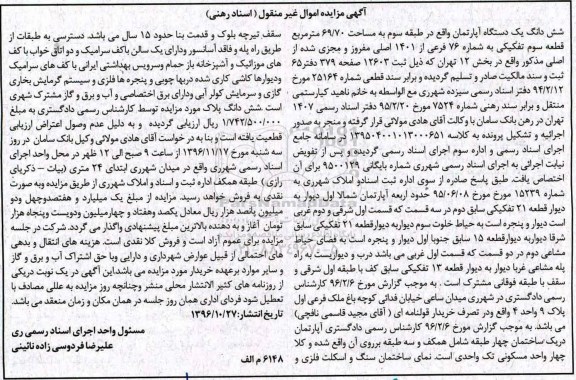 آگهی مزایده اموال غیر منقول ( اسناد رهنی)
شش دانگ یک دستگاه آپارتمان واقع در طبقه سوم به مساحت ۶۹/۷۰ مترمربع
قطعه سوم تفکیکی به شماره ۷۶ فرعی از ۱۴۰۱ اصلی مفروز و مجزی شده از
اصلی مذکور واقع در بخش ۱۲ تهران که ذیل ثبت ۱۲۶۰۳ صفحه ۳۷۹ دفتر۶۵
ثبت و سند مالکیت صادر و تسلیم گردیده و برابر سند قطعی شماره ۲۵۱۶۴ مورخ
۹۴/۲/۱۲ دفتر اسناد رسمی سیزده شهرری مع الواسطه به خانم ناهید کپارستمی
منتقل و برابر سند رهنی شماره ۷۵۲۴ مورخ ۹۵/۲/۲۰ دفتر اسناد رسمی ۱۴۰۷
تهران در رهن بانک سامان با وکالت آقای هادی مولائی قرار گرفته و منجر به صدور
اجرائیه و تشکیل پرونده به کلاسه ۱۳۹۵۰۴۰۰۱۰۱۳۰۰۰۶۵۱ سامانه جامع
اجرای اسناد رسمی و اداره سوم اجرای اسناد رسمی گردیده و پس از تفویض
نیابت اجرائی به اجرای اسناد رسمی شهرری شماره بایگانی ۹۵۰۰۱۴۹ برای آن
اختصاص یافت. طبق پاسخ صادره از سوی اداره ثبت اسنادو املاک شهرری به
شماره ۱۵۲۳۹ مورخ مورخ ۹۵/۰۶/۰۸ حدود اربعه آپارتمان شمالا اول دیوار به
دیوار قطعه ۲۱ تفکیکی سابق دوم در سه قسمت که قسمت اول شرقی و دوم غربی
است دیوار و پنجره است به حیاط خلوت سوم دیواربه دیوارقطعه ۲۱ تفکیکی سابق
شرقا دیواربه دیوارقطعه ۱۵ سابق جنوبا اول دیوار و پنجره است به فضای حیاط
مشاعی دوم در دو قسمت که قسمت اول غربی می باشد درب و دیواریست به راه
پله مشاعی غربا دیوار به دیوار قطعه ۱۳ تفکیکی سابق کف با طبقه اول شرقی و
سقف با طبقه فوقانی مشترک است . به موجب گزارش مورخ ۹۶/۲/۶ کارشناس
رسمی دادگستری در شهرری میدان ساعی خیابان فدائی کوچه باغ ملک فرعی اول
پلاک ۹ واحد ۴ واقع ودر تصرف خریدار قولنامه ای ( آقای مجید قاسمی نافچی)
می باشد. به موجب گزارش مورخ ۹۶/۲/۶ کارشناس رسمی دادگستری آپارتمان
دریک ساختمان چهار طبقه شامل همکف و سه طبقه برروی آن واقع شده و کلا
چهار واحد مسکونی تک واحدی است. نمای ساختمان سنگ و اسکلت فلزی و
سقف تیرچه بلوک و قدمت بنا حدود ۱۵ سال می باشد. دسترسی به طبقات از
طریق راه پله و فاقد آسانسور ودارای یک سالن باکف سرامیک و دو اتاق خواب با کف
های موزائیک و آشپزخانه باز حمام وسرویس بهداشتی ایرانی با کف های سرامیک
ودیوارها کاشی کاری شده دربها چوبی و پنجره ها فلزی و سیستم گرمایش بخاری
گازی و سرمایش کولر آبی ودارای برق اختصاصی و آب و برق و گاز مشترک شهری
است .شش دانگ پلاک مورد مزایده توسط کارشناس رسمی دادگستری به مبلغ
۱/۷۴۲/۵۰۰/۰۰۰ ریال ارزیابی گردیده و به دلیل عدم وصول اعتراض ارزیابی
قطعیت یافته است و بنا به در خواست آقای هادی مولائی وکیل بانک سامان در روز
سه شنبه مورخ ۱۳۹۶/۱۱/۱۷ از ساعت ۹ صبح الی ۱۲ ظهر در محل واحد اجرای
اسناد رسمی شهرری واقع در میدان شهرری ابتدای ۲۴ متری (بیات – ذکریای
رازی ) طبقه همکف اداره ثبت و اسناد و املاک شهرری از طریق مزایده وبه صورت
نقدی به فروش خواهد رسید. مزایده از مبلغ یک میلیارد و هفتصدوچهل ودو
میلیون پانصد هزار ریال معادل یکصد وهفتاد و چهارمیلیون ودویست وپنجاه هزار
تومان آغاز و به دهنده بالاترین مبلغ پیشنهادی واگذار می گردد. شرکت در جلسه
مزایده برای عموم آزاد است و فروش کلا نقدی است. هزینه های انتقال و بدهی
های احتمالی از قبیل عوارض شهرداری و دارایی وبا حق اشتراک آب و برق و گاز
و سایر موارد برعهده خریدار مورد مزایده می باشد.این آگهی در یک نوبت دریکی
از روزنامه های کثیر الانتشار محلی منشر وچنانچه روز مزایده به عللی مصادف با
تعطیل شود فردای اداری همان روز جلسه در همان مکان و زمان منعقد می باشد.
تاریخ انتشار:۱۳۹۶/۱۰/۲۷
مسئول واحد اجرای اسناد رسمی ری
علیرضا فردوسی زاده نائینی
۶۱۴۸ م الف